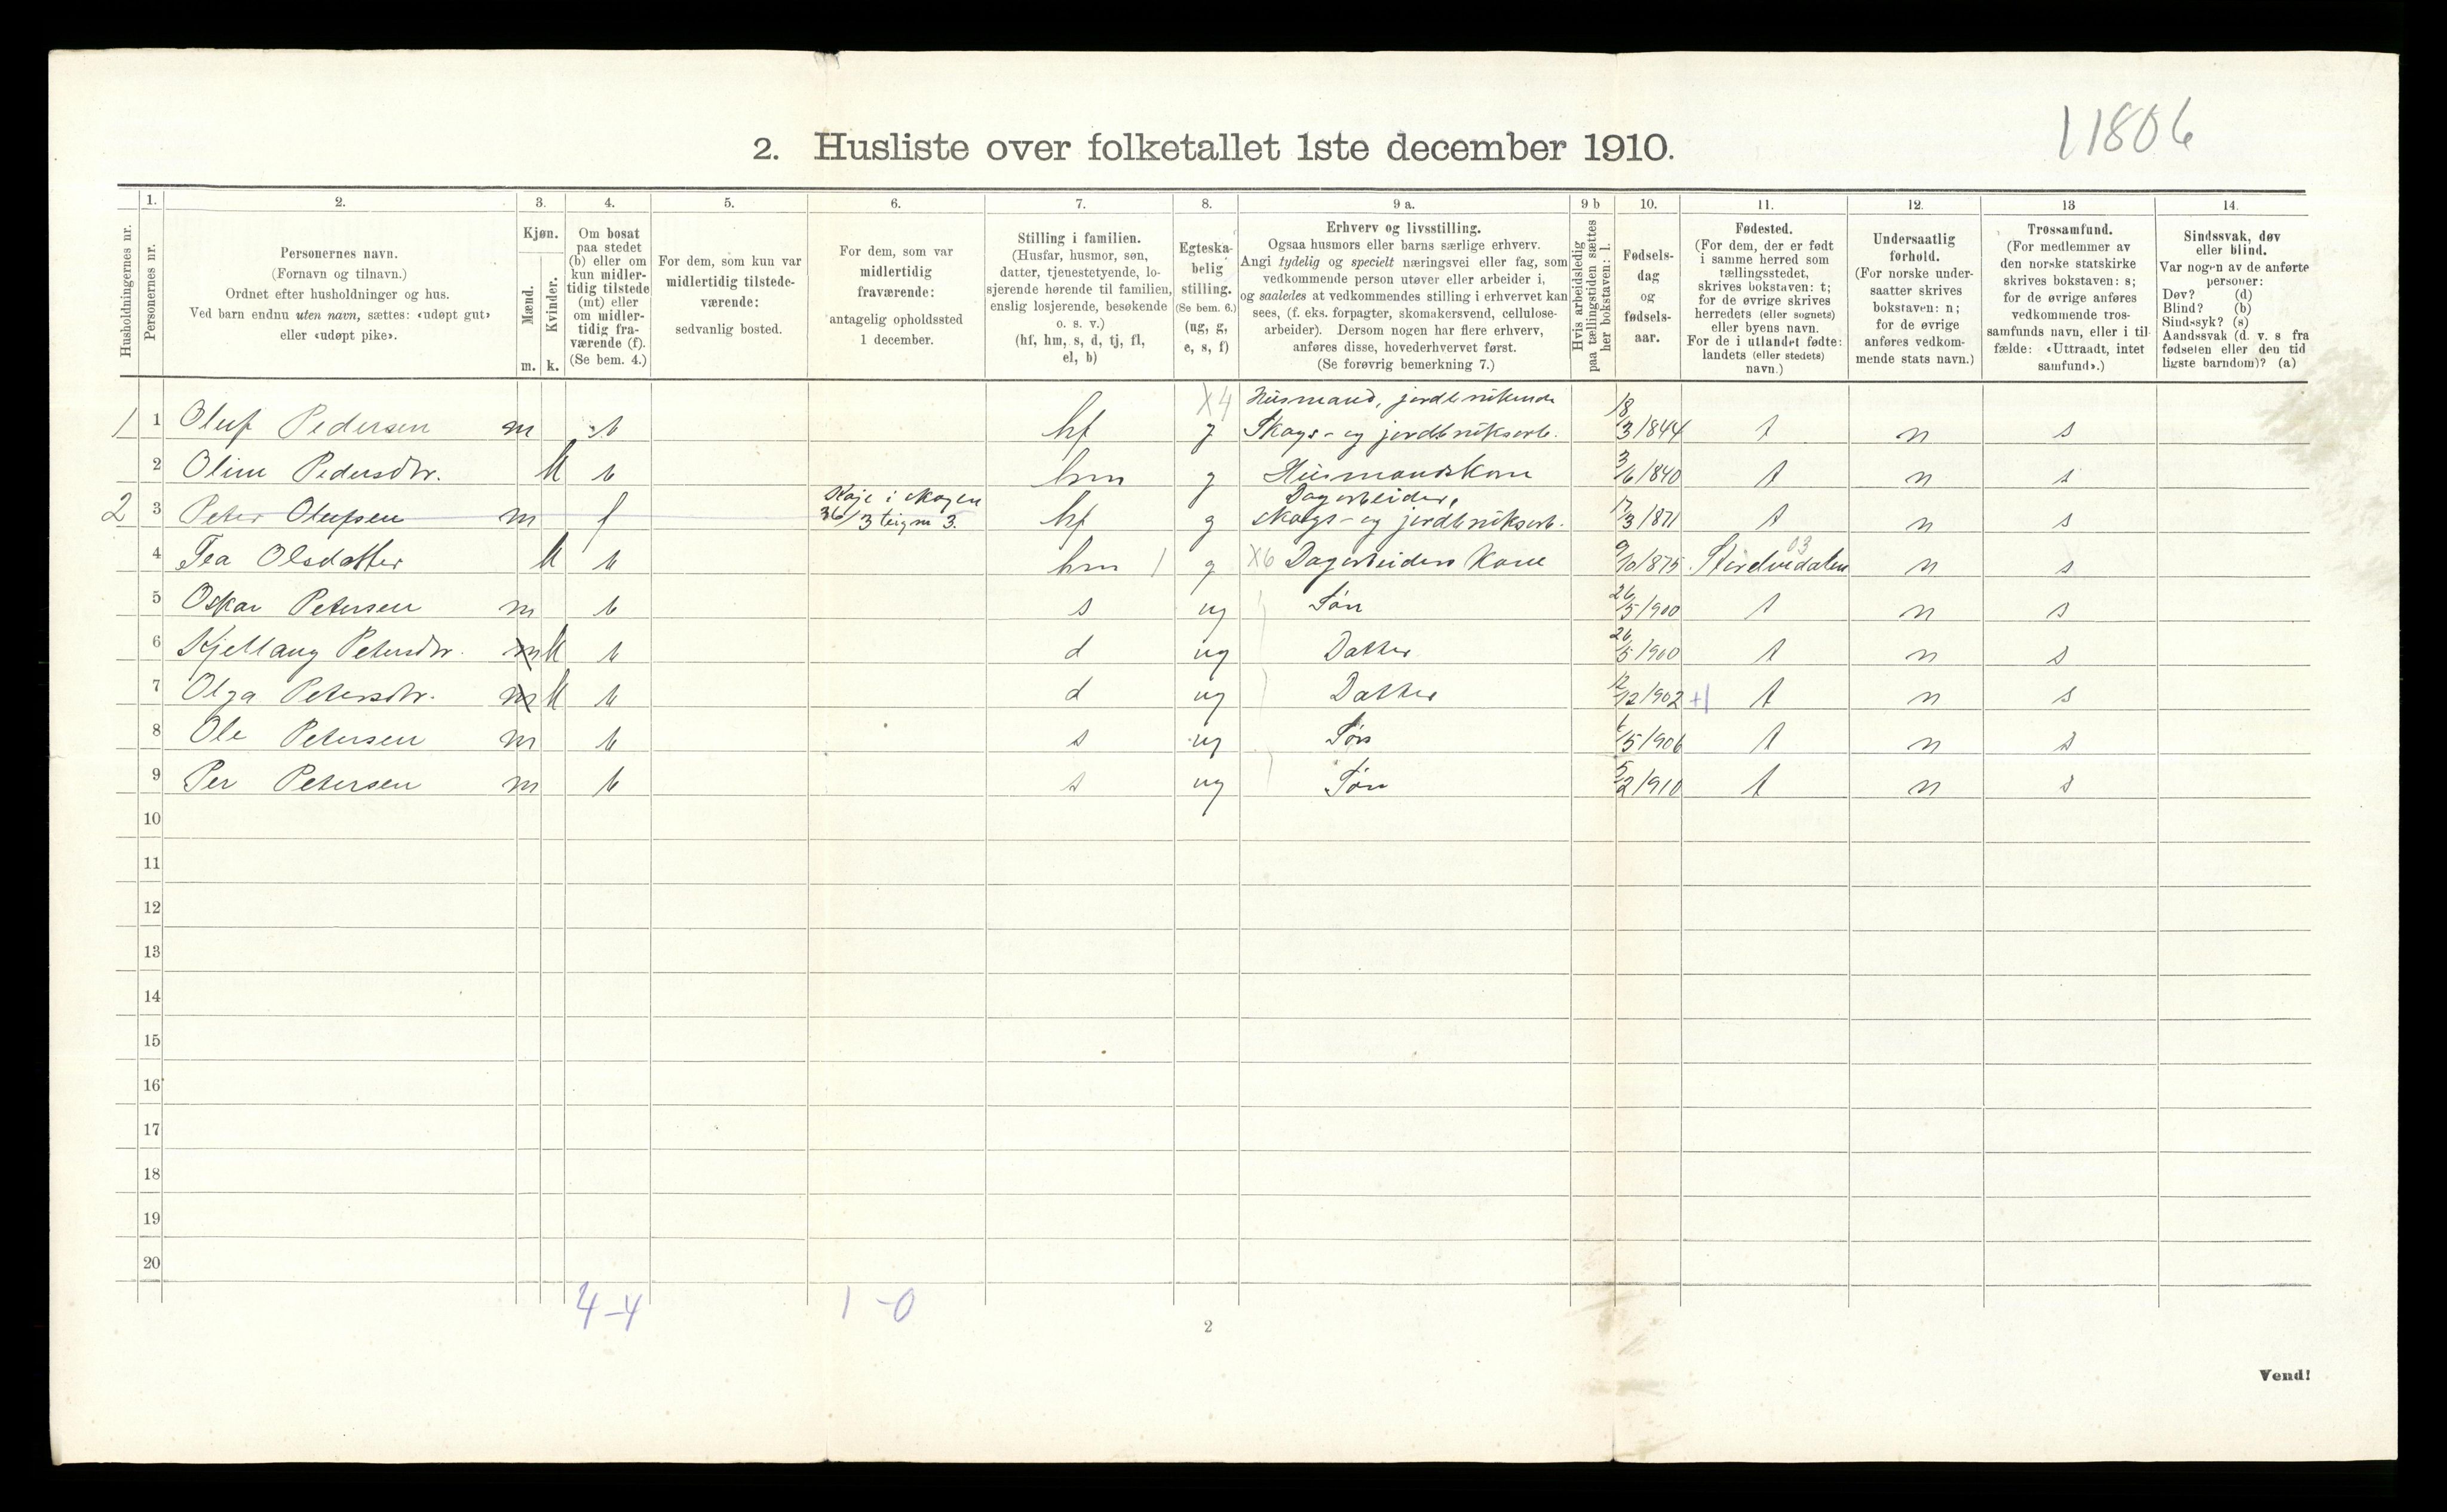 11806
2. Husliste over folketallet 1ste december 1910.
1. 2. 3. 4. 5. 6. 7. 8. 9 a. 9 b 10. 11. 12. 13 14.
Husholdningernes nr.
Personernes nr.
Personernes navn.
(Fornavn og tilnavn.)
Ordnet efter husholdninger og hus.
Ved barn endnu uten navn, sættes: «udøpt gut»
eller «udøpt pike».
Kjøn.
Mænd.
Kvinder.
m. k.
Om bosat
paa stedet
(b) eller om
kun midler-
tidig tilstede
(mt) eller
om midler-
tidig fra-
værende (f).
(Se bem. 4.)
For dem, som kun var
midlertidig tilstede-
værende:
sedvanlig bosted.
For dem, som var
midlertidig
fraværende:
antagelig opholdssted
1 december.
Stilling i familien.
(Husfar, husmor, søn,
datter, tjenestetyende, lo-
sjerende hørende til familien,
enslig losjerende, besøkende
o. s. v.)
(hf, hm, s, d, tj, fl,
el, b)
Egteska-
belig
stilling.
(Se bem. 6.)
(ug, g,
e, s, f)
Erhverv og livsstilling.
Ogsaa husmors eller barns særlige erhverv.
Angi tydelig og specielt næringsvei eller fag, som
vedkommende person utøver eller arbeider i,
og saaledes at vedkommendes stilling i erhvervet kan
sees, (f. eks. forpagter, skomakersvend, cellulose-
arbeider). Dersom nogen har flere erhverv,
anføres disse, hovederhvervet først.
(Se forøvrig bemerkning 7.)
Hvis arbeidsledig
paa tællingstiden sættes
her bokstaven: l.
Fødsels-
dag
og
fødsels-
aar.
Fødested.
(For dem, der er født
i samme herred som
tællingsstedet,
skrives bokstaven: t;
for de øvrige skrives
herredets (eller sognets)
eller byens navn.
For de i utlandet fødte:
landets (eller stedets)
navn.)
Undersaatlig
forhold.
(For norske under-
saatter skrives
bokstaven: n;
for de øvrige
anføres vedkom-
mende stats navn.)
Trossamfund.
(For medlemmer av
den norske statskirke
skrives bokstaven: s;
for de øvrige anføres
vedkommende tros-
samfunds navn, eller i til-
fælde: «Uttraadt, intet
samfund».)
Sindssvak, døv
eller blind.
Var nogen av de anførte
personer:
Døv? (d)
Blind? (b)
Sindssyk? (s)
Aandssvak (d. v. s fra
fødselen eller den tid
ligste barndom)? (a)
X4 Husmand, jordbrukende
1 1 Oluf Pedersen m b hf g Skogs- og jordbruksarb. 18/3 1844 t n s
2 Oline Pedersdtr. k b hm g Husmandskone 3/6 1840 t n s
Koje i skogen Dagarbeider,
2 3 Peter Olufsen m f 36/3 teig nr 3. hf g skogs- og jordbruksarb. 17/3 1871 t n s
4 Tea Olsdatter k b hm 1 g X6 Dagarbeiders Kone 9/10 1875 Størdvedalen 03 n s
5 Oskar Petersen m b s ug Søn 26/5 1900 t n s
6 Kjellaug Petersdtr. m k b d ug Datter 26/5 1900 t n s
7 Olga Petersdtr. m k b d ug Datter 12/12 1902 +1 t n s
8 Ole Petersen m b s ug Søn 6/5 1906 t n s
9 Per Petersen m b s ug Søn 5/2 1910 t n s
10
11
12
13
14
15
16
17
18
19
20
4-4 1-0
2
Vend!